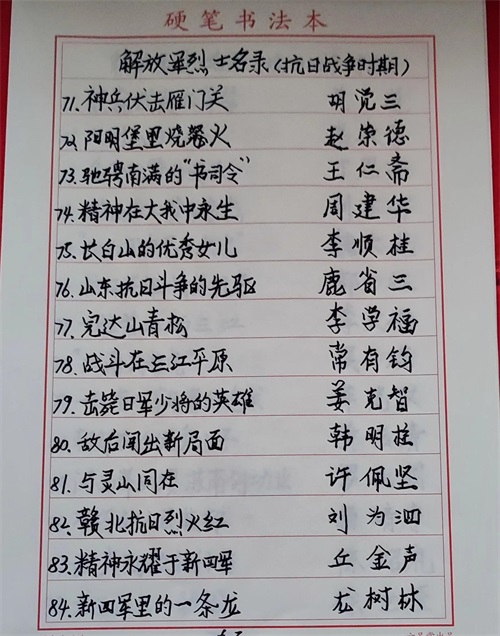 硬笔书法本
解放军烈士名录(抗日战争时期)
71.神兵伏击雁门关 胡觉三
72.阳明堡里烧寇火 赵崇德
73.驰骋南满的"书司令" 王仁斋
74.精神在大我中永生 周建华
75.长白山的优秀女儿 李顺桂
76.山东抗日斗争的先驱 鹿省三
77.完达山青松 李学福
78.战斗在三江平原 常有钧
79.击毙日军少将的英雄 姜克智
80.敌后闯出新局面 韩明柱
81.与灵山同在 许佩坚
82.赣北抗日烈火红 刘为泗
83.精神永耀于新四军 丘金声
84.新四军里的一条龙 尤树林